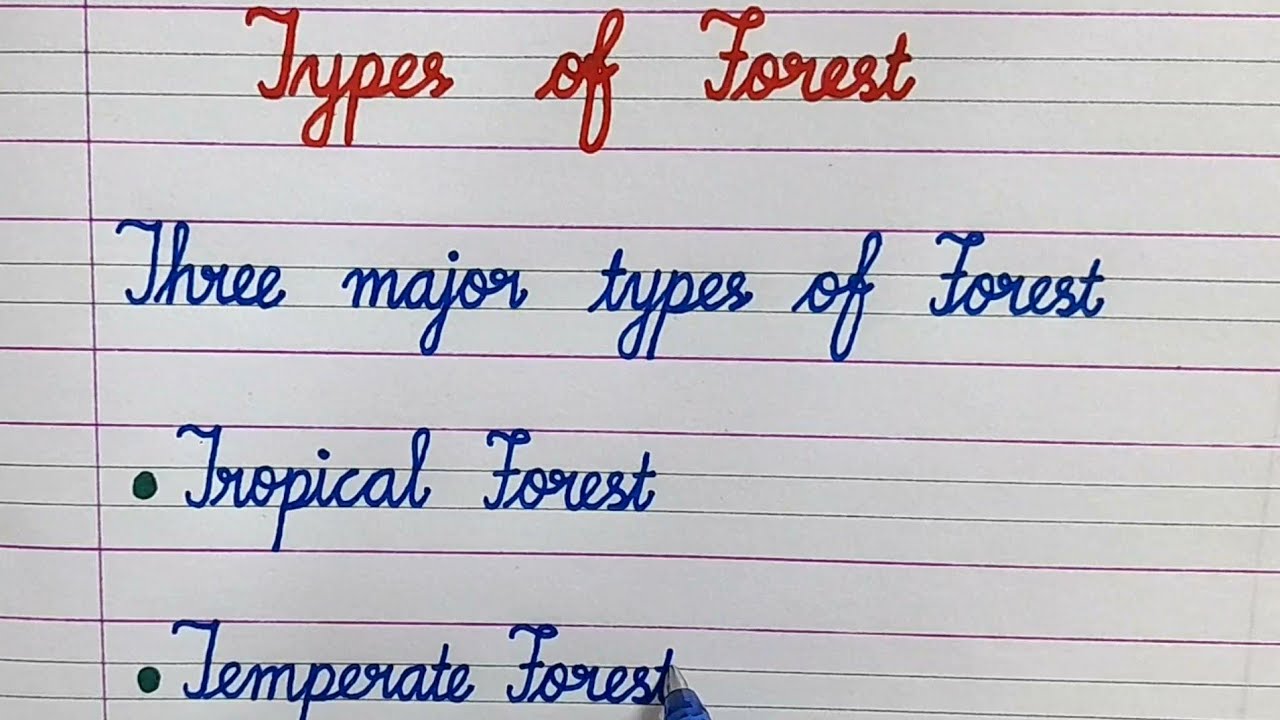 Types of Forest
Three major types of Forest
• Tropical Forest
• Temperate Forest